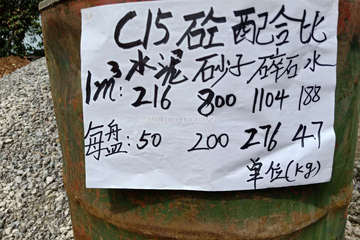 C15砼配合比
水泥 砂子 碎石 水
1m³: 216 800 1104 188
每盘: 50 200 276 47
单位(kg)